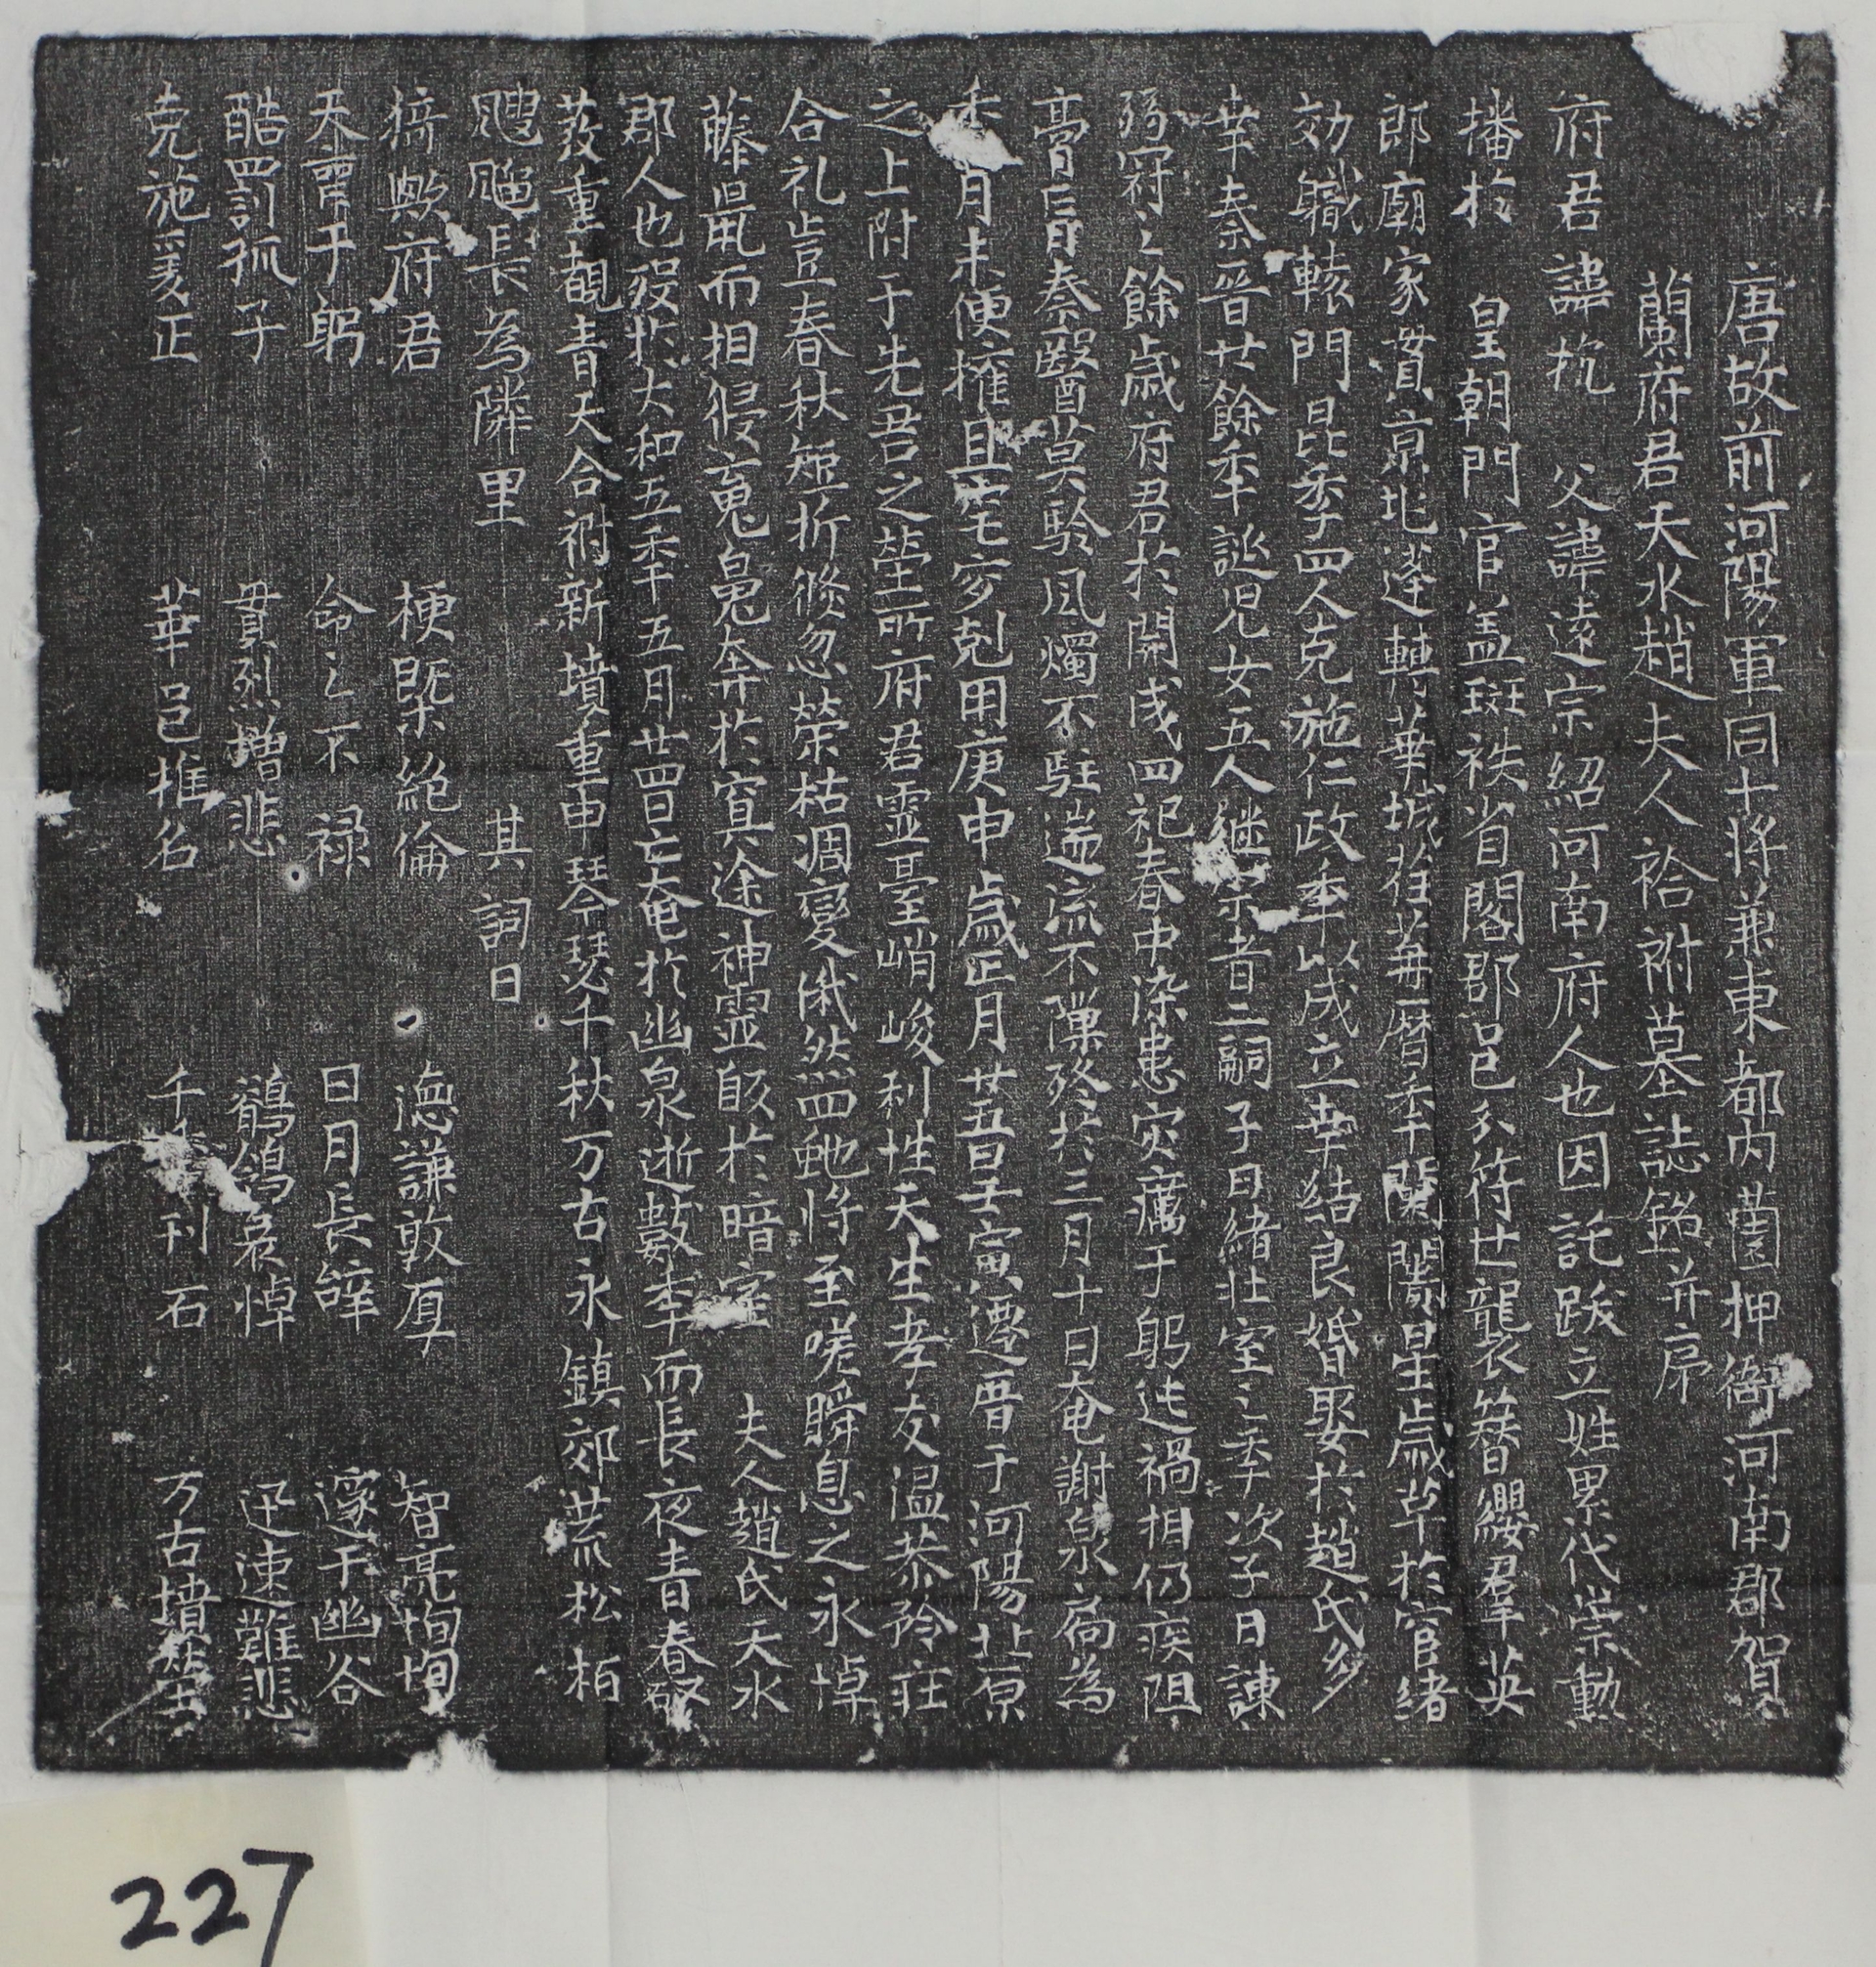 唐故前河陽軍同十將兼東都內薗押衙河南郡賀
蘭府君天水趙夫人祫祔墓誌銘并序
府君諱杭　父諱遠宗紹河南府人也因託跋立姓累代崇勳
墦於　皇朝門官盖斑秩省閣郡邑分符廿襲簪纓羣英
郎廟家貫京地遂轉華城往苒曆季闌闠星歲卒於官緒
効職轅門昆季四人克施仁政季以成立幸結良婚娶於趙氏多
幸秦晉廿餘年誕兒女五人繼宗者二嗣子曰緒壯室之季次子曰諫
弱冠之餘歲府君於開成四祀春中染患灾癘于躬迍禍相仍疾阻
膏肓秦醫莫騐風燭不駐湍流不殫終於三月十日奄謝泉扃為
季月未便攉且宅穸剋用庚申歲正月廿五日壬寅遷厝于河陽北原
之上附于先君之塋所府君靈臺峭峻利性天生孝友温恭矜莊
合礼豈春秋短折倏忽榮枯凋變俄然四虵將至嗟瞬息之永悼
藤鼠而相侵寃梟奔於寘途神靈皈於暗室　夫人趙氏天水
郡人也殁於大和五年五月廿四日亡奄於幽泉逝數年而長夜青春磬
發重覩青天合祔新墳重申琴瑟千秋万古永鎮郊荒松柏
颼飀長為隣里　其詞曰
猗歟府君　梗槩絶倫　德謙敦厚　智亮恂恂
天奪于躬　命之不禄　日月長辭　邃于幽谷
酷罰孤子　貫烈增悲　鶺鴒哀悼　迅速難悲
克施爰正　華邑推名　千秋刊石　万古墳塋